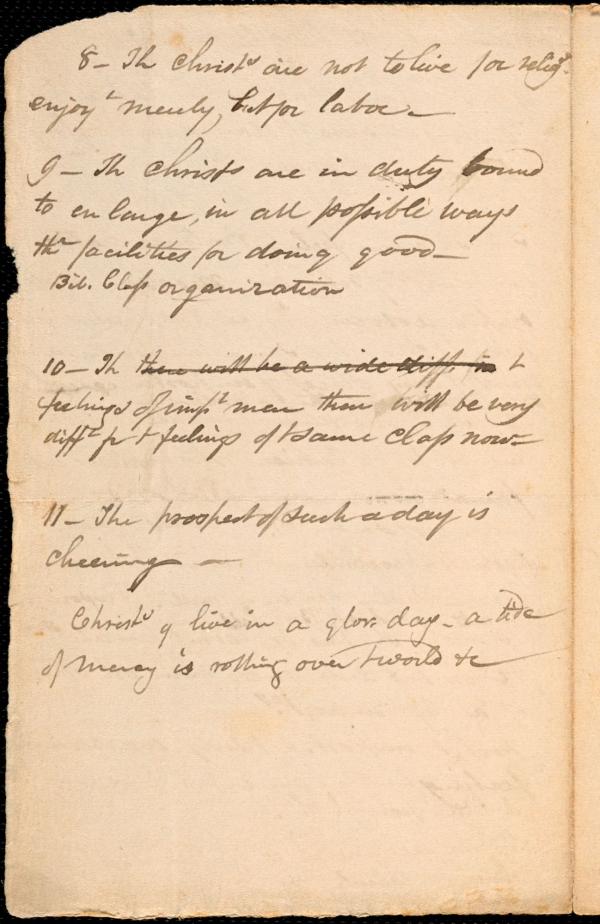 8 – Th Christs are not to live for relig.
enjoyt merely, but for labor –
9 – Th Christs are in duty bound
to enlarge, in all possible ways
thr facilities for doing good –
Bib. Class organization
10 – Th there will be a wide diff. in t
feelings of impt men then will be very
difft fr t feelings of t same class now –
11 – The prospect of such a day is
cheering –
Christs y live in a glors day – a tide
of mercy is rolling over t world &c